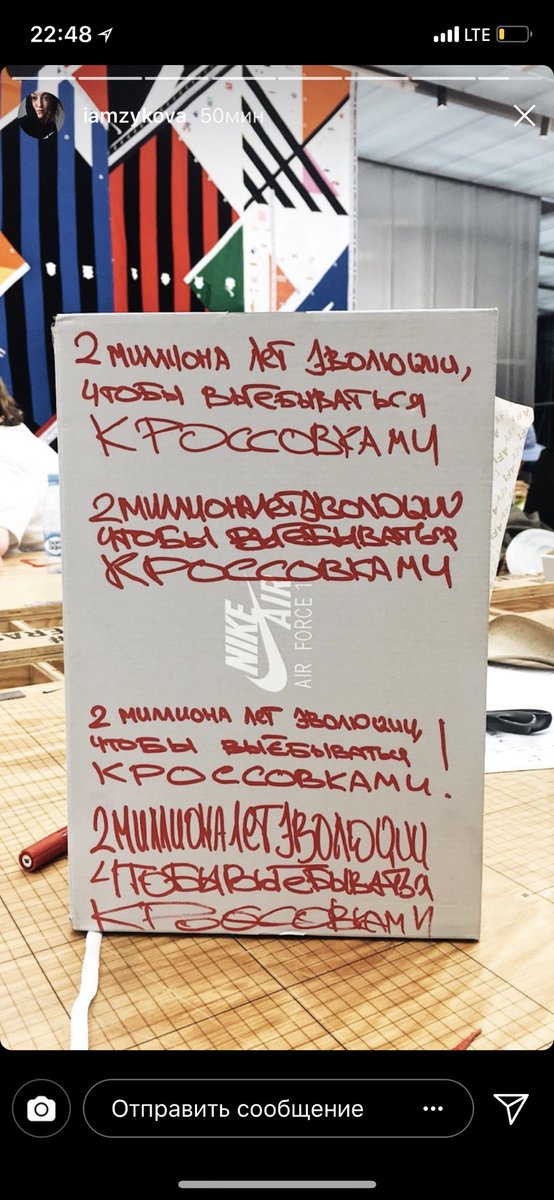 22:48
LTE
iamzykova 50мин
2 миллиона лет эволюции,
чтобы выёбываться
кроссовками
2 миллиона лет эволюции
чтобы выёбываться
кроссовками
NIKE AIR
AIR FORCE 1
2 миллиона лет эволюции,
чтобы выёбываться
кроссовками!
2 миллиона лет эволюции
чтобы выёбываться
кроссовками
Отправить сообщение